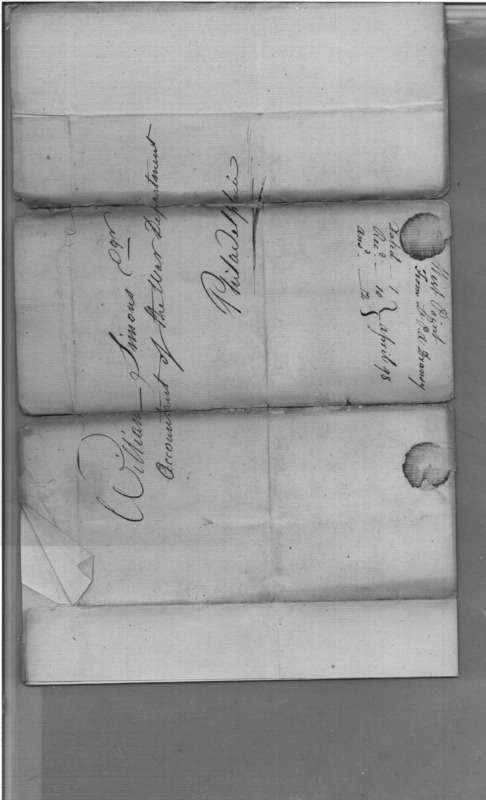 William Simons Esqr
Accountant of the War Department
Philadelphia
West Point
From
Dated 1
Recd. 10 } April 98
Ansd.